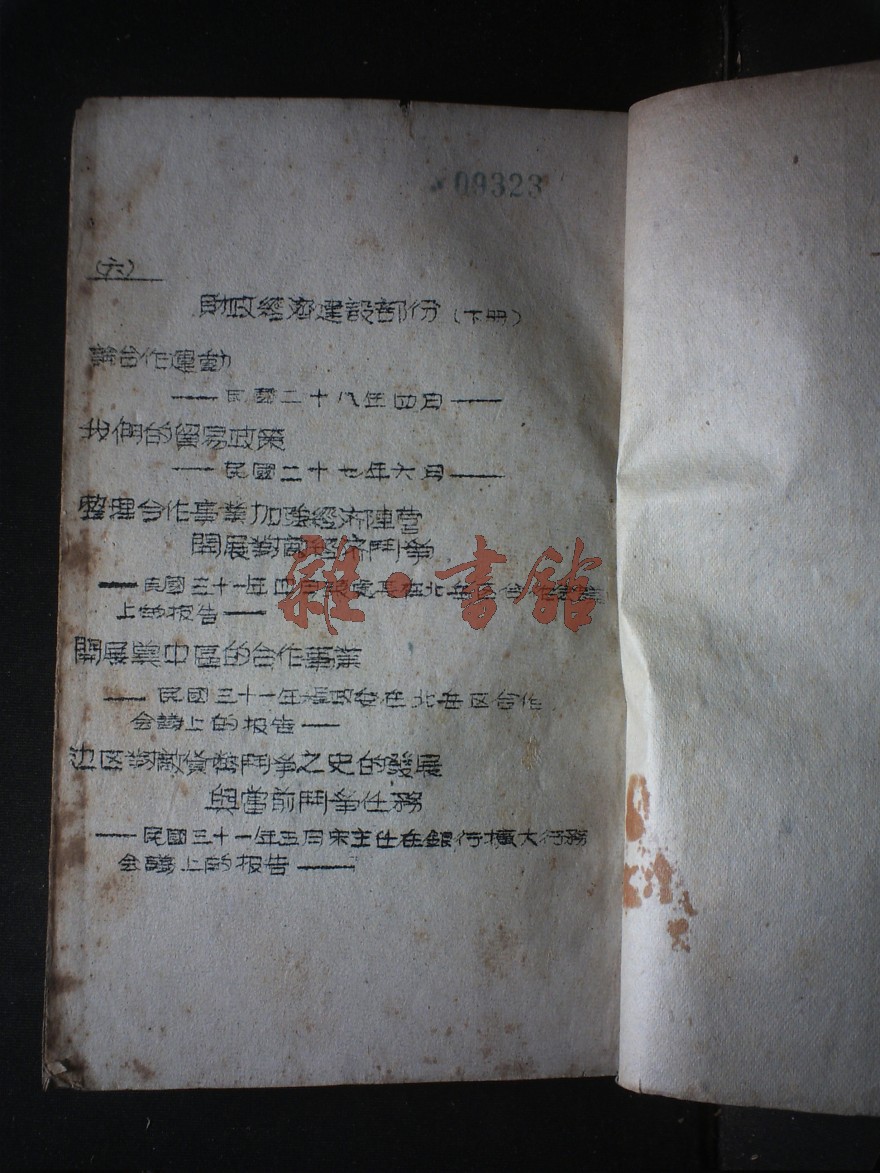 09323
(六)
財政經濟建設部份(下册)
論合作運動
——民國二十八年四月——
我們的貿易政策
——民國二十七年六月——
整理合作事業加强經濟陣营
開展對敵經济鬥爭
——民國三十一年四月 處長在北岳区合作會議
上的报告——
開展冀中區的合作事業
——民國三十一年 在北岳区合作
会議上的报告——
边区對敵貨幣鬥爭之史的發展
與當前鬥爭任務
——民國三十一年五月宋主任在銀行擴大行務
会議上的报告——
雜·書館